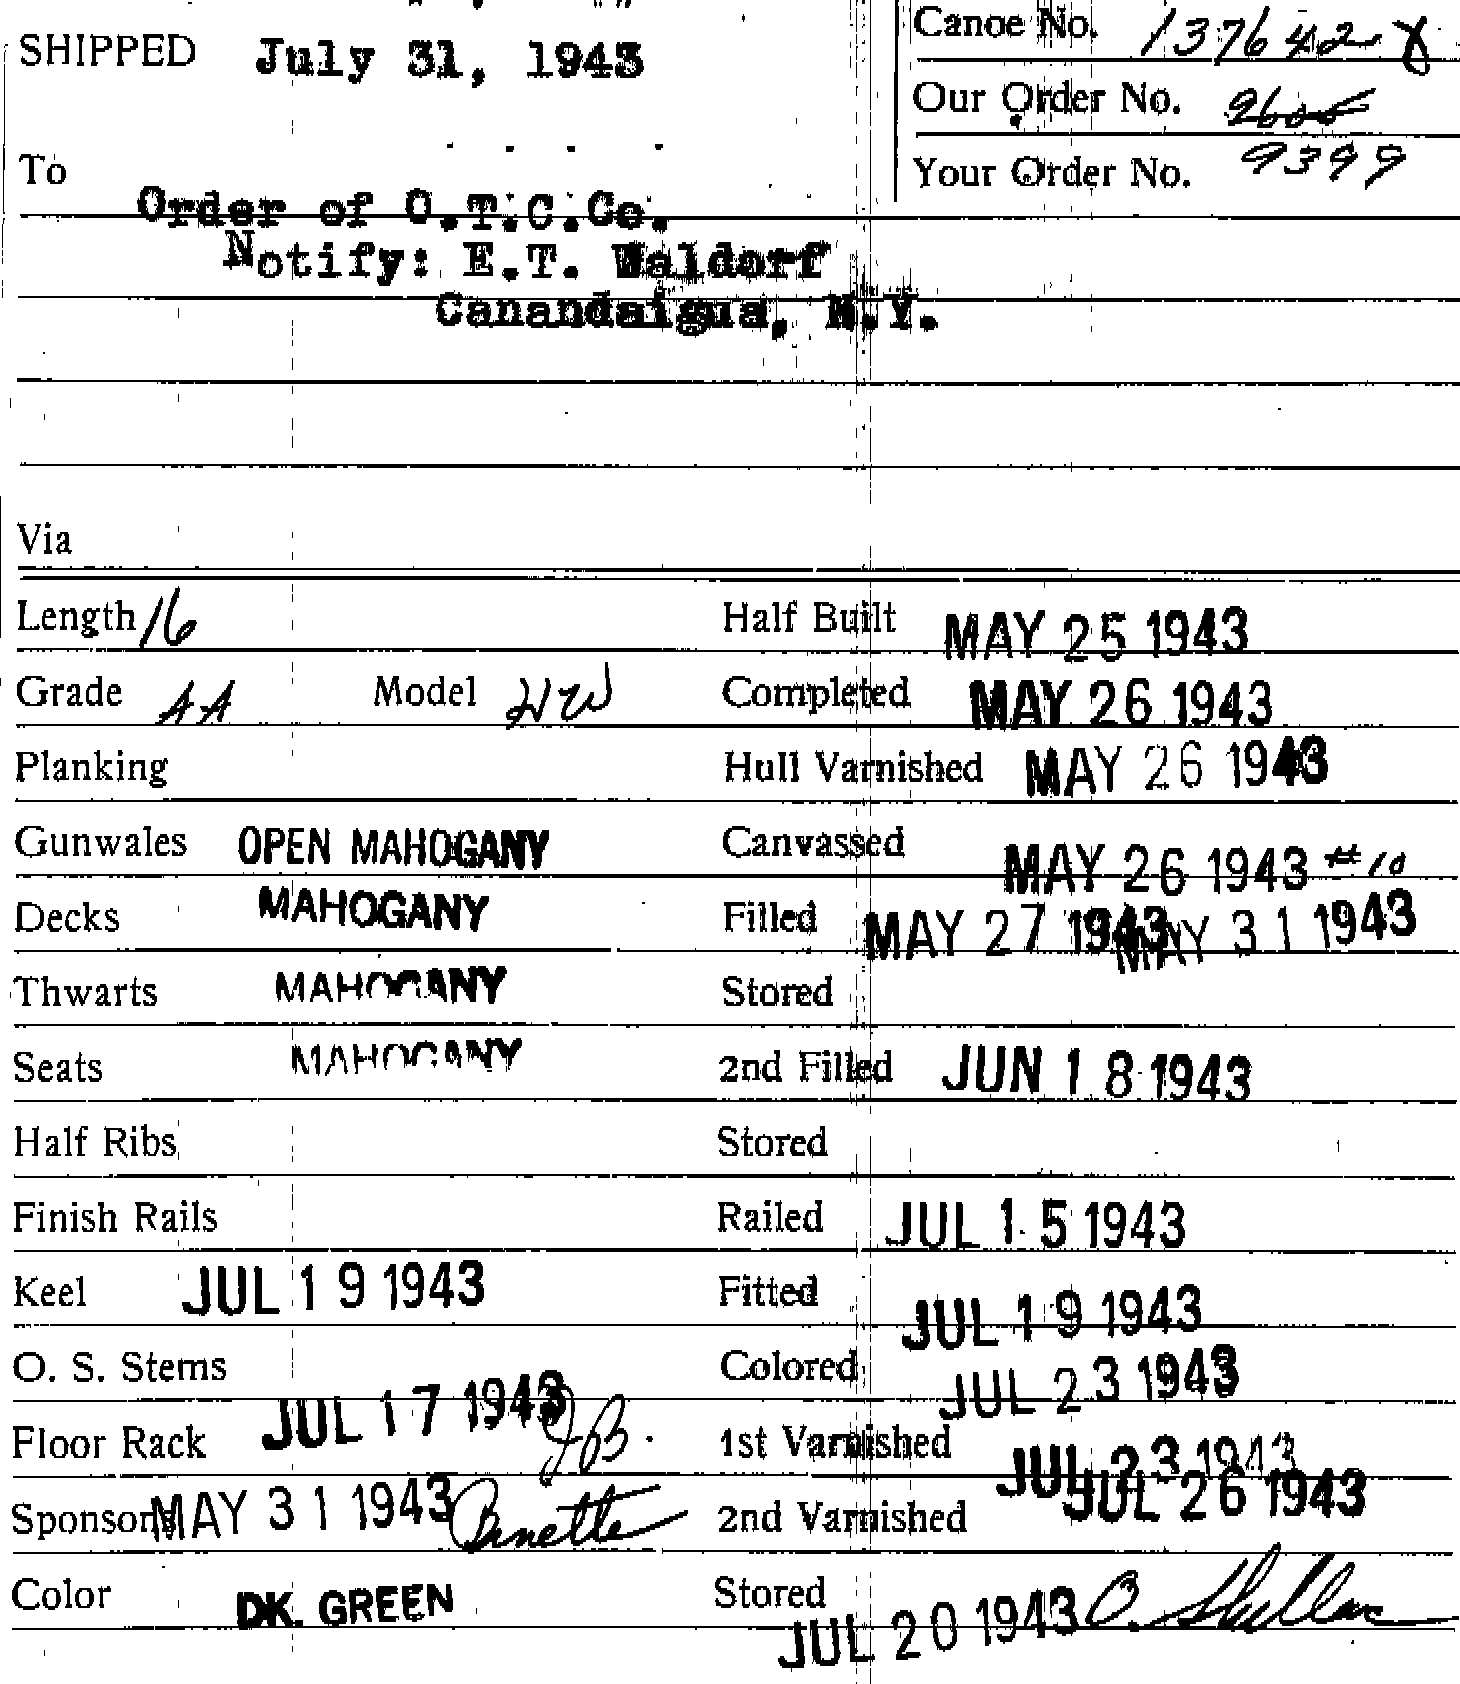 SHIPPED July 31, 1943
Canoe No. 137642
Our Order No.
Your Order No. 9399
To
Order of O.T.C.Co.
Notify: E.T. Waldorf
Canandaigua, N.Y.
Via
Length 16 Half Built MAY 25 1943
Grade AA Model HW Completed MAY 26 1943
Planking Hull Varnished MAY 26 1943
Gunwales OPEN MAHOGANY Canvassed MAY 26 1943 #10
Decks MAHOGANY Filled MAY 27 1943 MAY 31 1943
Thwarts MAHOGANY Stored
Seats MAHOGANY 2nd Filled JUN 18 1943
Half Ribs Stored
Finish Rails Railed JUL 15 1943
Keel JUL 19 1943 Fitted JUL 19 1943
O. S. Stems Colored JUL 23 1943
Floor Rack JUL 17 1943 1st Varnished JUL 23 1943
Sponsons MAY 31 1943 2nd Varnished JUL 26 1943
Color DK. GREEN Stored JUL 20 1943